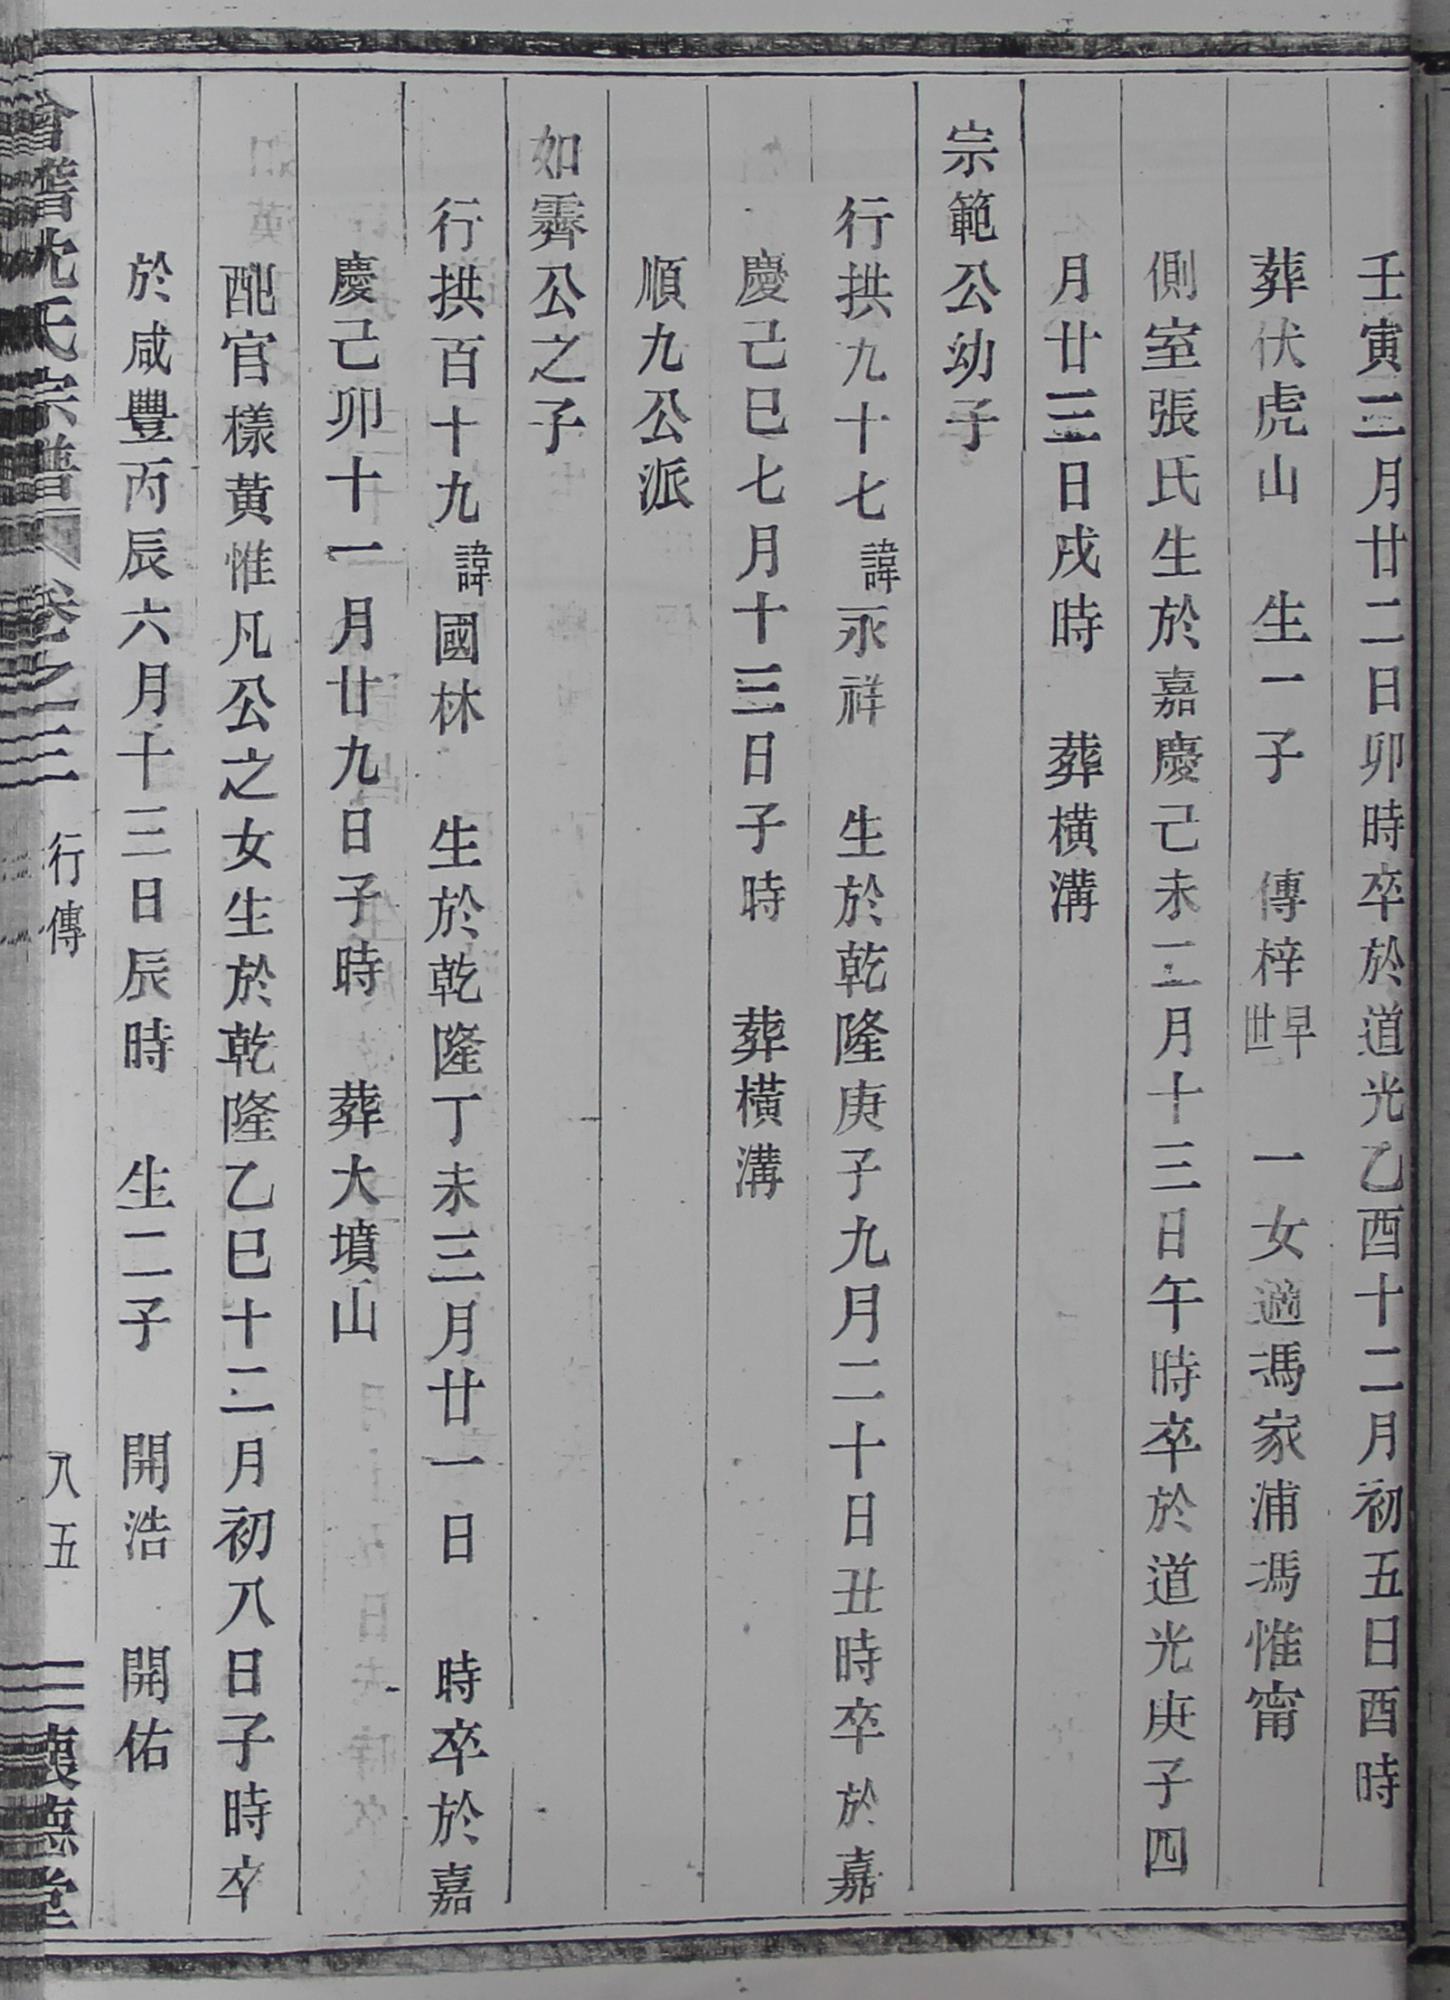 壬寅三月廿二日卯時卒於道光乙酉十二月初五日酉時
葬伏虎山　生一子　傳梓早世　一女適馮家浦馮惟甯
側室張氏生於嘉慶己未二月十三日午時卒於道光庚子四
月廿三日戌時　葬橫溝
宗範公幼子
行拱九十七諱永祥　生於乾隆庚子九月二十日丑時卒於嘉
慶己巳七月十三日子時　葬橫溝
順九公派
如霽公之子
行拱百十九諱國林　生於乾隆丁未三月廿一日　時卒於嘉
慶己卯十一月廿九日子時　葬大墳山
配官樣黃惟凡公之女生於乾隆乙巳十二月初八日子時卒
於咸豐丙辰六月十三日辰時　生二子　開浩　開佑
會稽沈氏宗譜　卷之三　行傳　八五　懷德堂